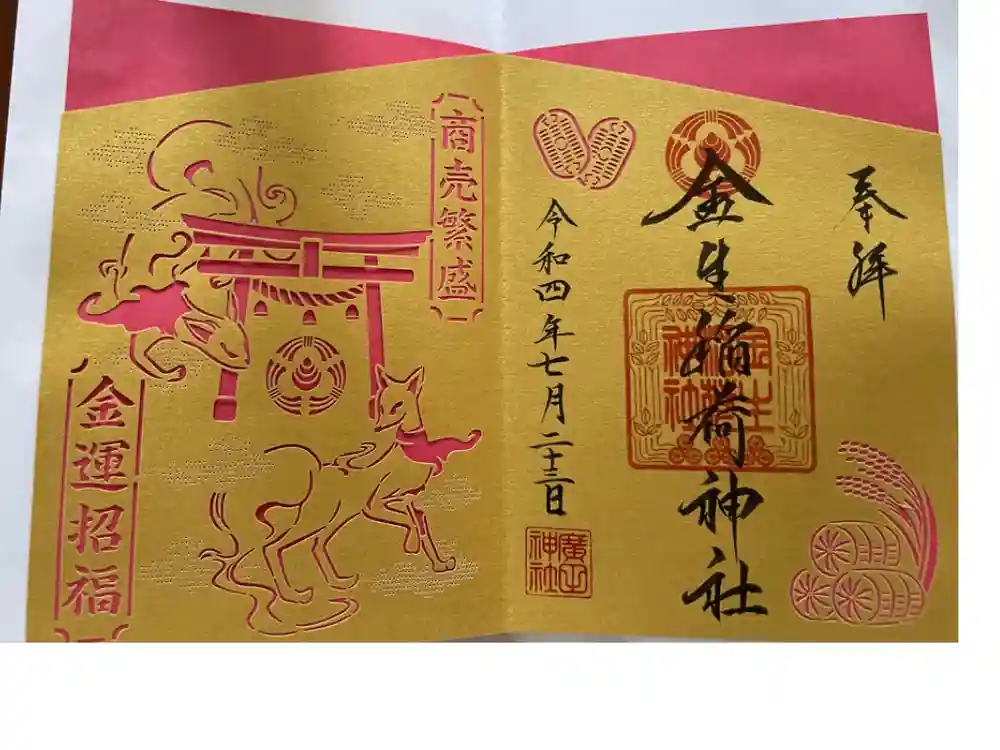 奉拝
金生稲荷神社
金生
稲荷
神社
令和四年七月二十三日
廣田
神社
商売繁盛
金運招福